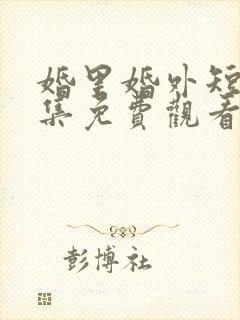 婚里婚外短
集免費觀看
彭博社